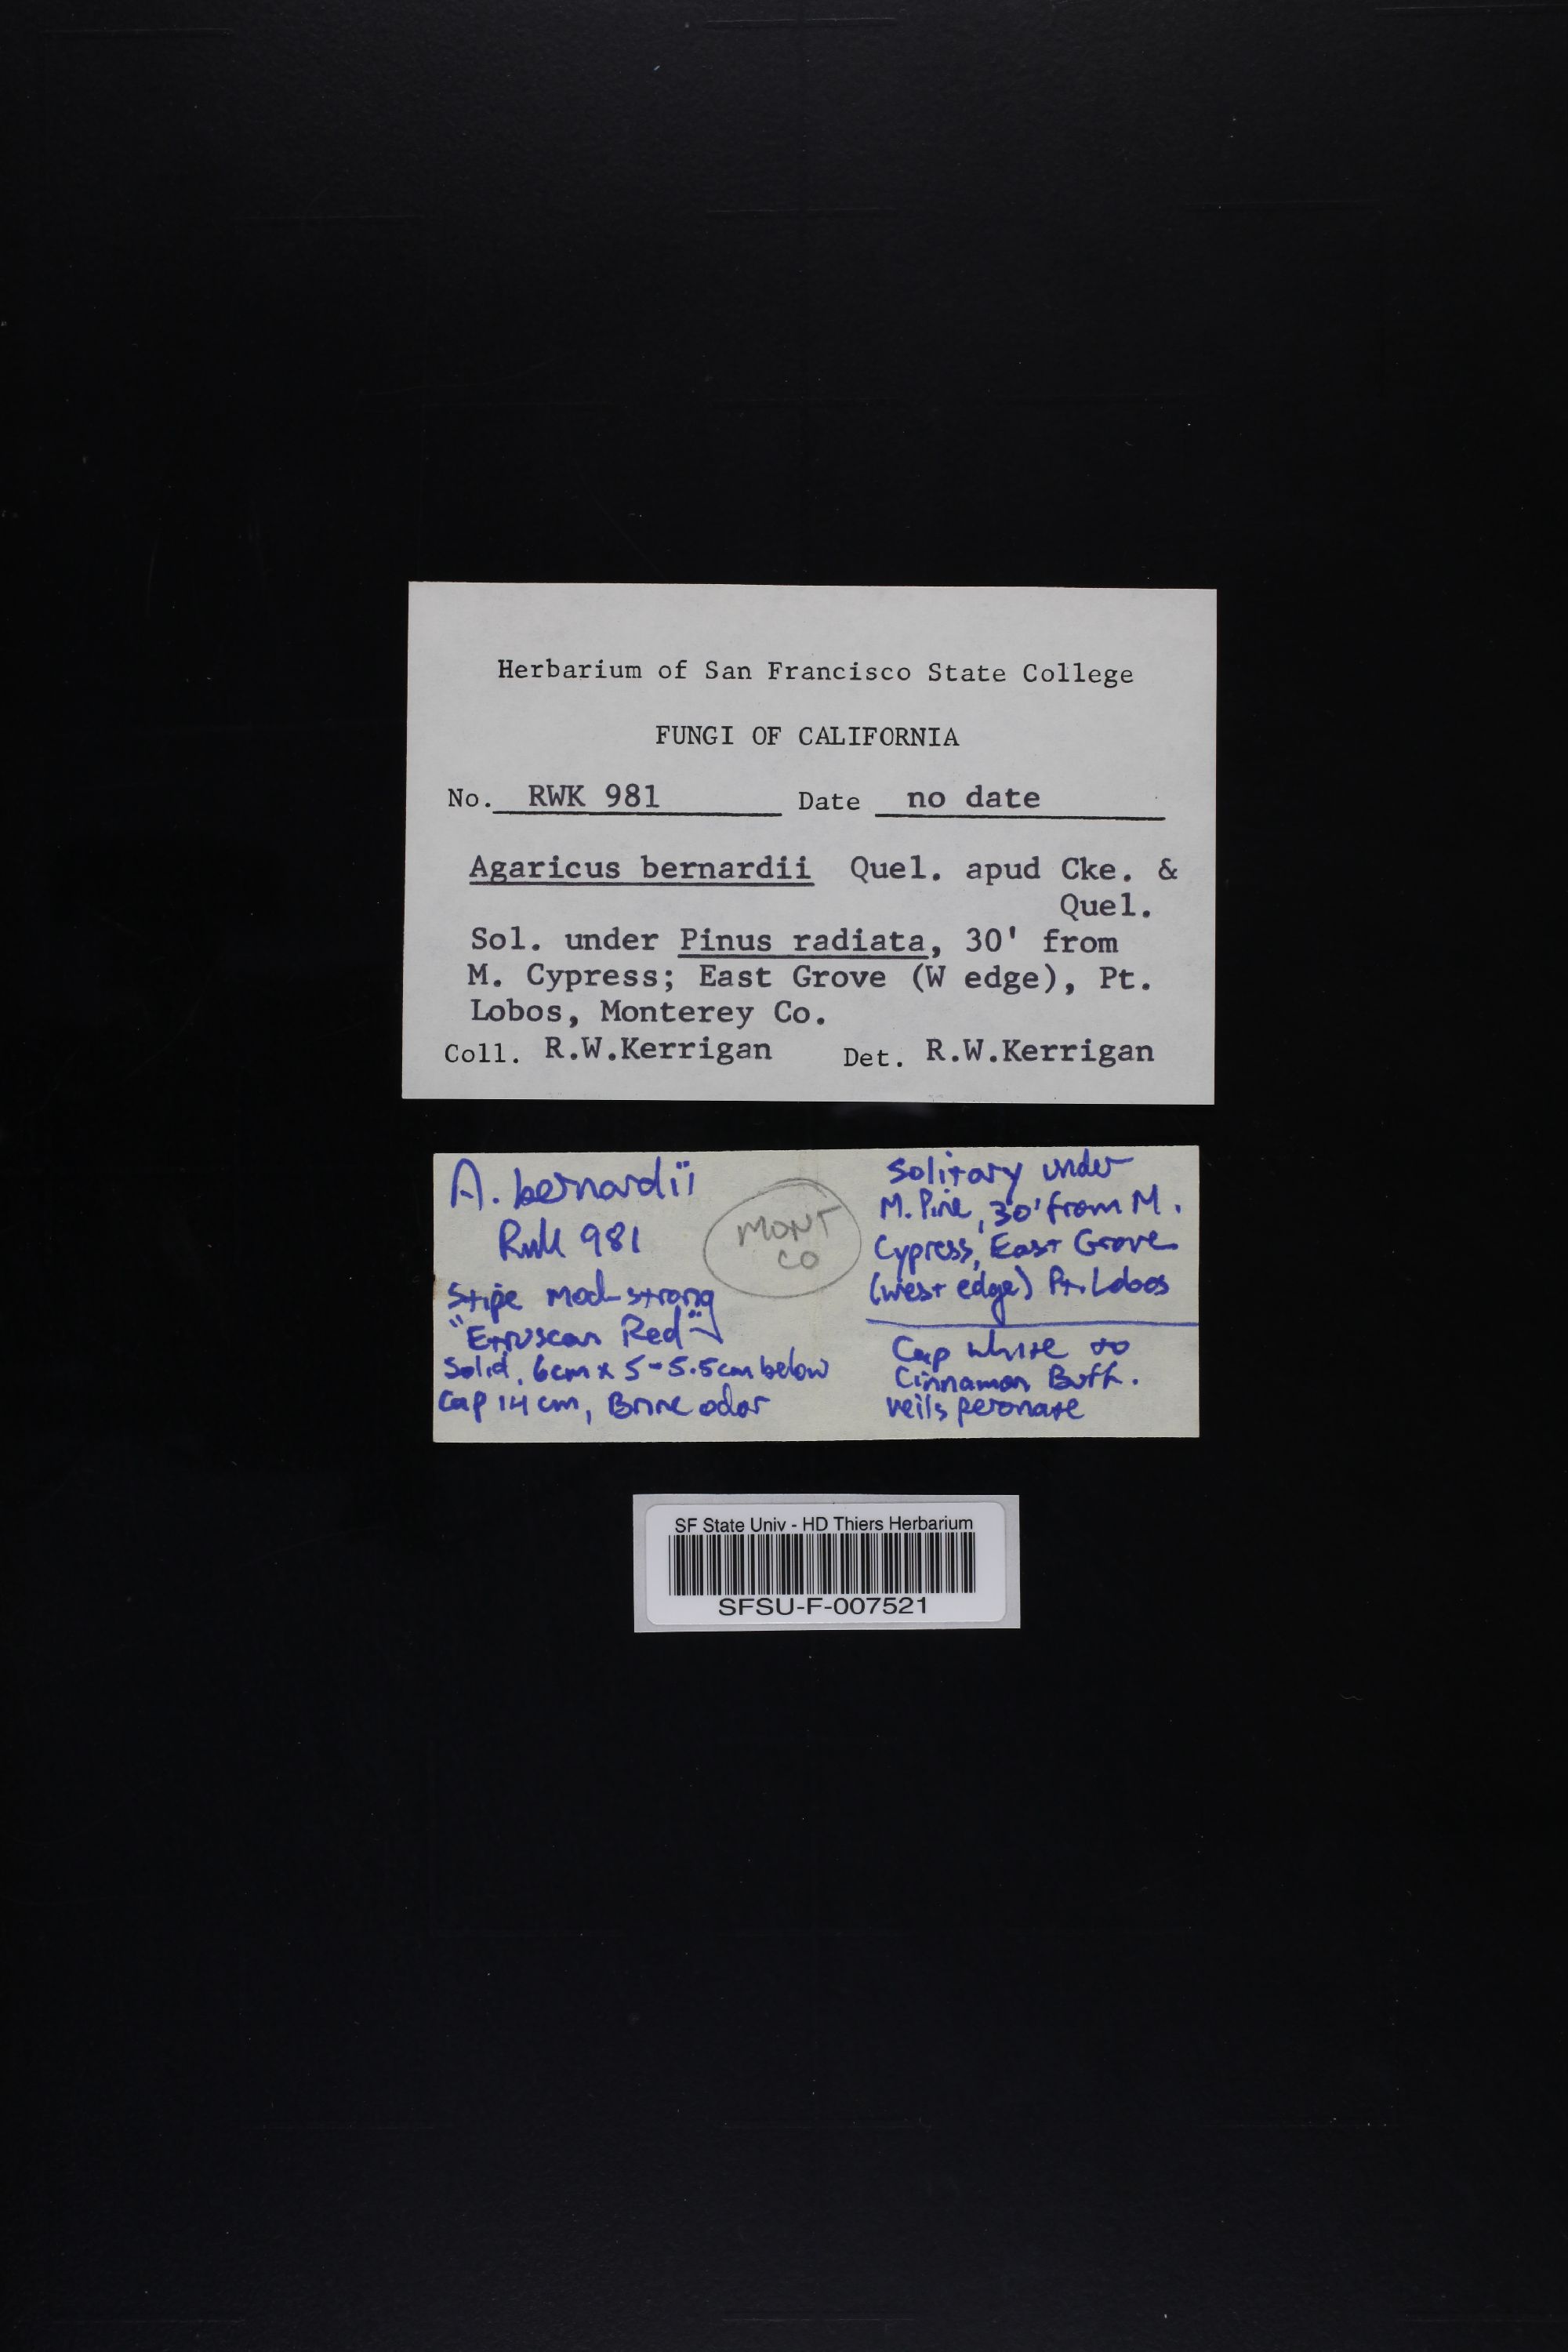 Herbarium of San Francisco State College
FUNGI OF CALIFORNIA
No. RWK 981 Date no date
Agaricus bernardii Quel. apud Cke. &
Quel.
Sol. under Pinus radiata, 30' from
M. Cypress; East Grove (W edge), Pt.
Lobos, Monterey Co.
Coll. R.W.Kerrigan Det. R.W.Kerrigan
A. bernardii
RWK 981
Stipe mod-strong
"Etruscan Red"
Solid, 6cm x 5-5.5cm below
Cap 14 cm, Brine odor
MONT
CO
Solitary under
M. Pine, 30' from M.
Cypress, East Grove
(west edge) Pt. Lobos
Cap white to
Cinnamon Buff.
veils peronate
SF State Univ - HD Thiers Herbarium
SFSU-F-007521